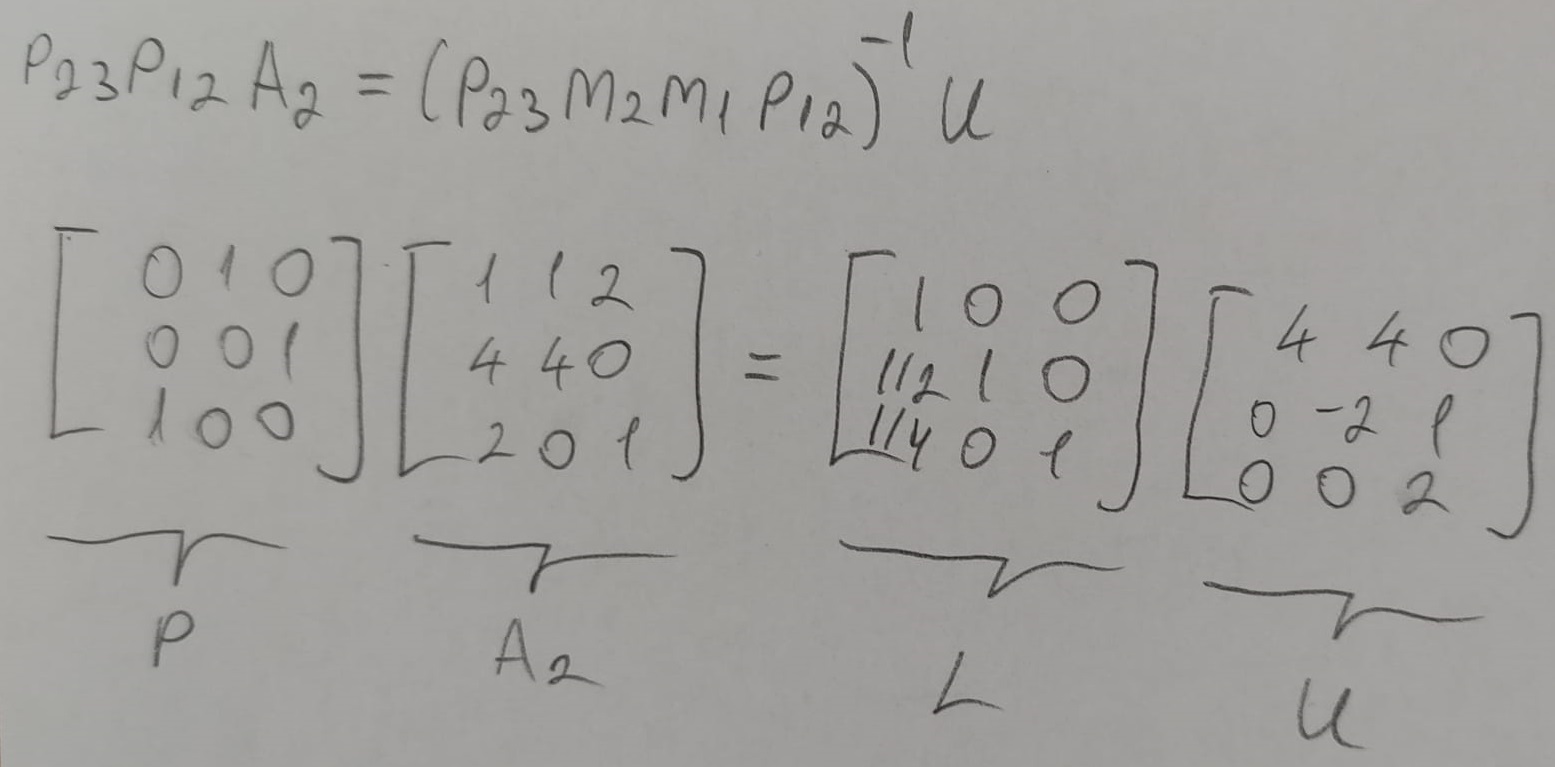 P23P12 A2 = (P23 M2 M1 P12)^-1 U
[0 1 0; 0 0 1; 1 0 0] [1 1 2; 4 4 0; 2 0 1] = [1 0 0; 1/2 1 0; 1/4 0 1] [4 4 0; 0 -2 1; 0 0 2]
P A2 L U